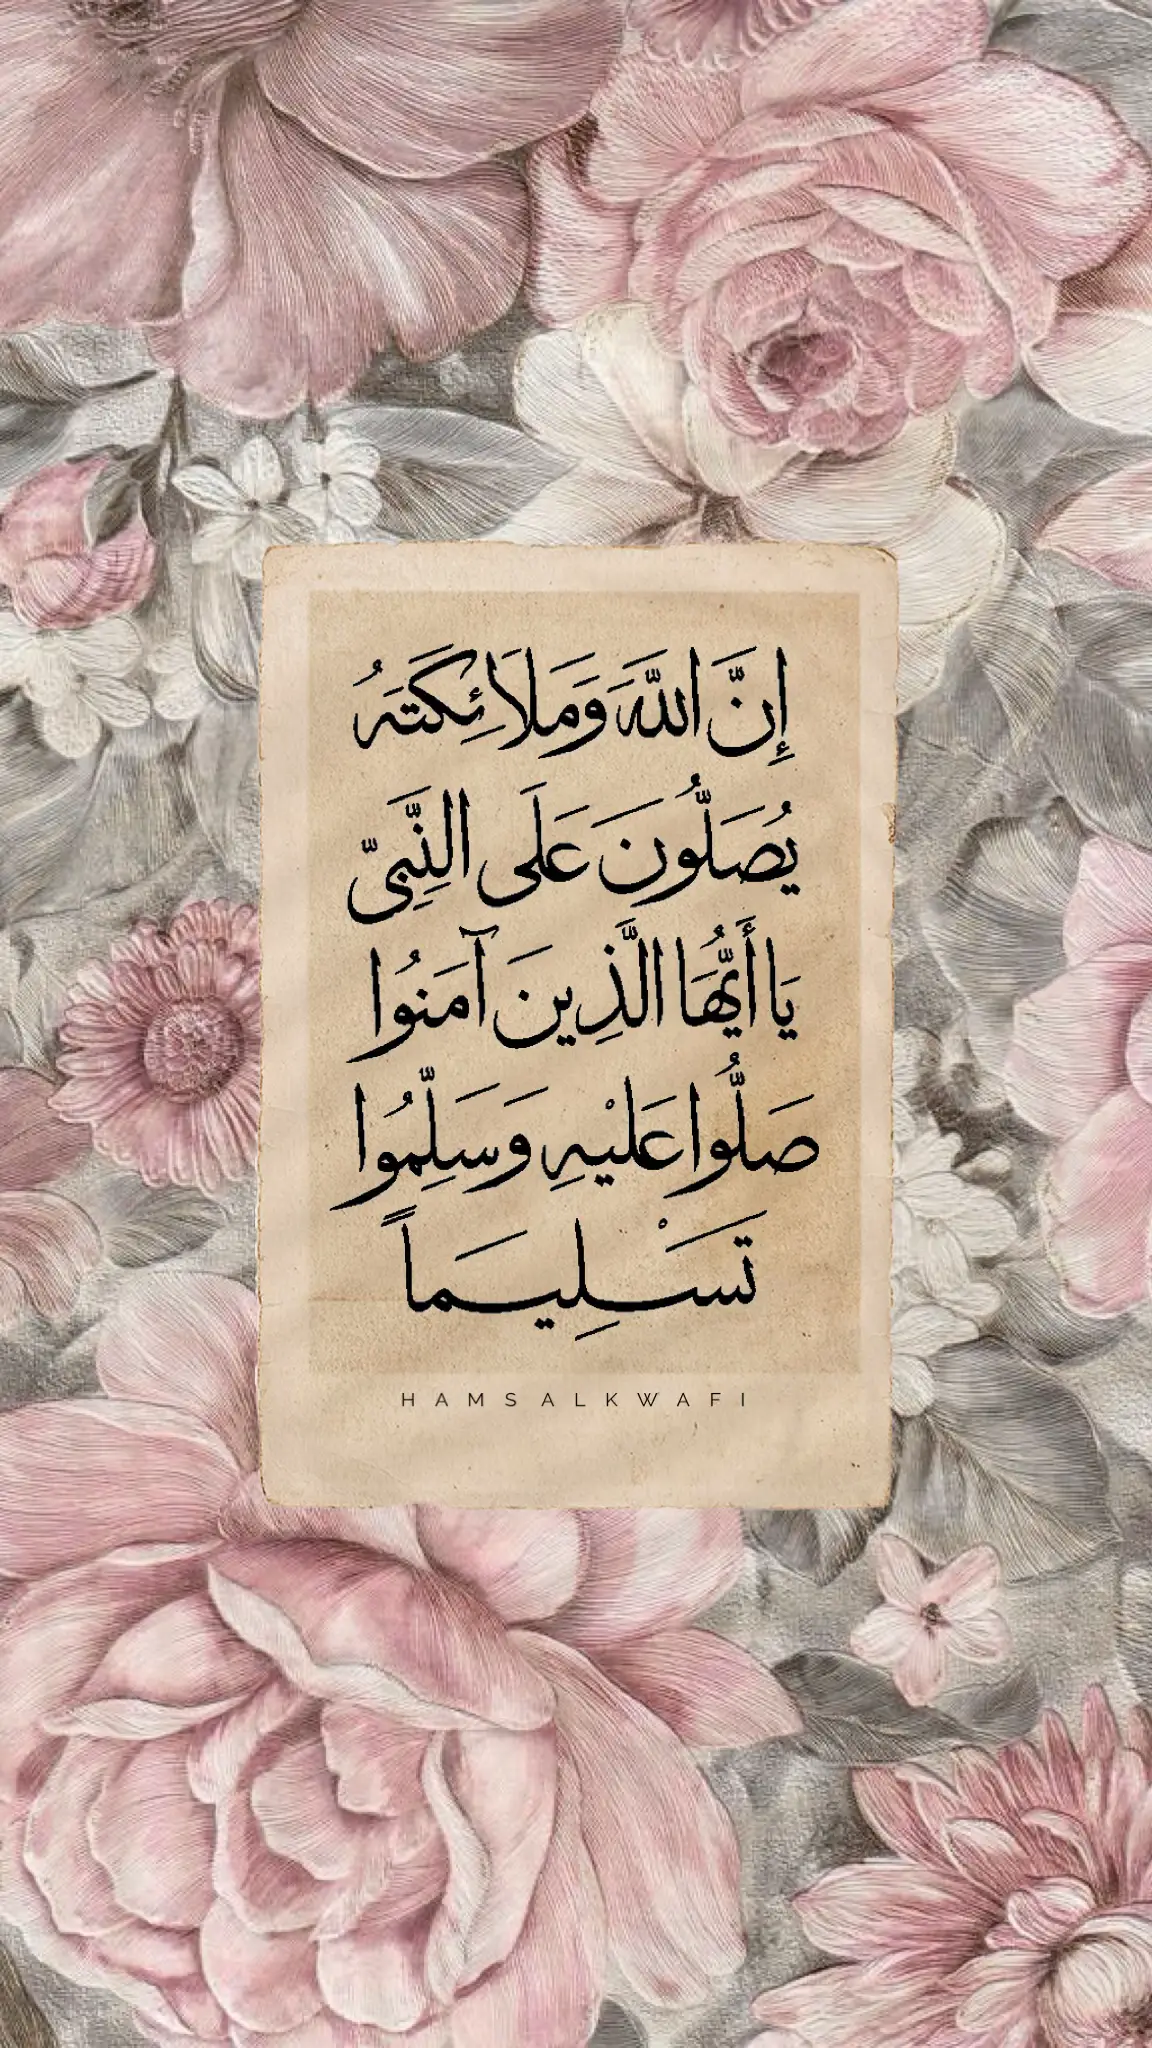 إِنَّ اللَّهَ وَمَلَائِكَتَهُ
يُصَلُّونَ عَلَى النَّبِيِّ
يَا أَيُّهَا الَّذِينَ آمَنُوا
صَلُّوا عَلَيْهِ وَسَلِّمُوا
تَسْلِيمَاً
HAMSALKWAFI